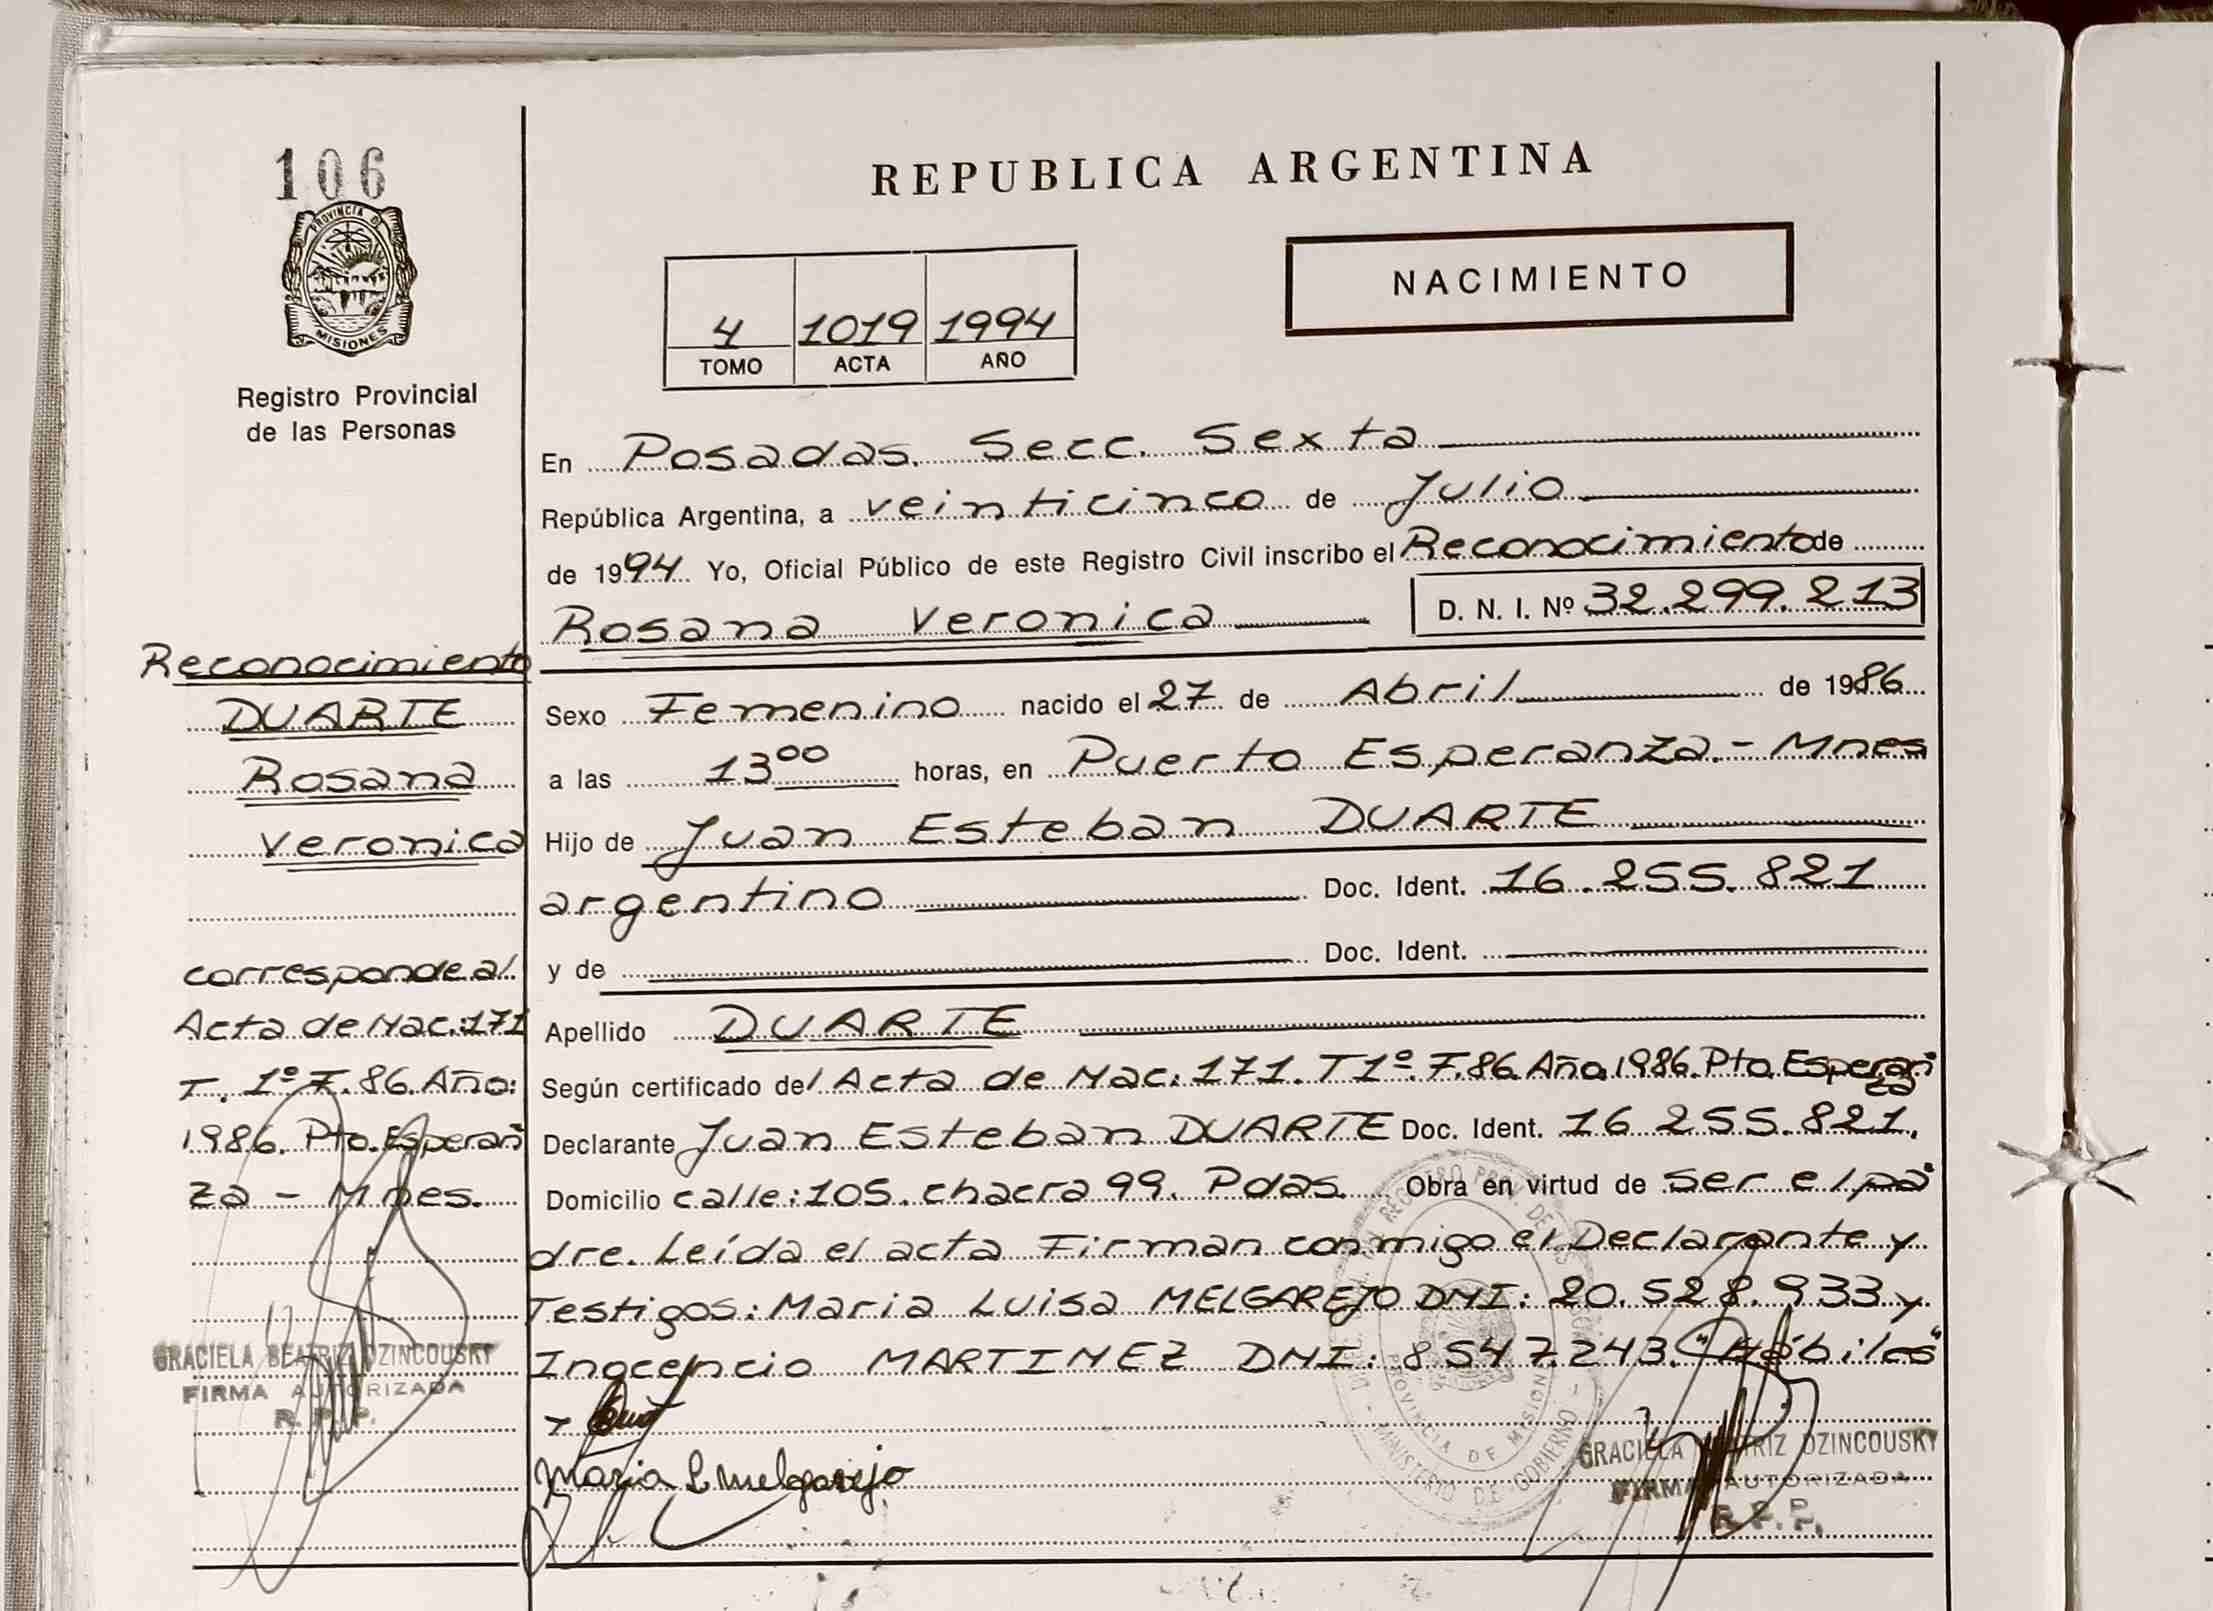 106
PROVINCIA DE
MISIONES
Registro Provincial
de las Personas
Reconocimiento
DUARTE
Rosana
Veronica
corresponde al
Acta de Nac.:171
T. 1º F. 86. Año:
1986. Pto. Esperan
za - Mnes.
GRACIELA BEATRIZ DZINCOUSKY
FIRMA AUTORIZADA
R. P. P.
REPUBLICA ARGENTINA
NACIMIENTO
4 1019 1994
TOMO ACTA AÑO
En Posadas. Secc. Sexta
República Argentina, a veinticinco de Julio
de 1994 Yo, Oficial Público de este Registro Civil inscribo el Reconocimiento de
Rosana Veronica D. N. I. Nº 32.299.213
Sexo Femenino nacido el 27 de Abril de 1986
a las 13 00 horas, en Puerto Esperanza.- Mnes
Hijo de Juan Esteban DUARTE
argentino Doc. Ident. 16.255.821
y de Doc. Ident.
Apellido DUARTE
Según certificado del Acta de Nac: 171. T 1º. F.86. Año.1986. Pto. Esperanza
Declarante Juan Esteban DUARTE Doc. Ident. 16 255.821.
Domicilio calle: 105. chacra 99. Pdas. Obra en virtud de ser el pa
dre. Leída el acta Firman conmigo el Declarante y
Testigos: Maria Luisa MELGAREJO DNI: 20.528.933 y
Inocencio MARTINEZ DNI: 8 547.243. "Hábiles"
Maria L Melgarejo
PROVINCIA DE MISIONES
MINISTERIO DE GOBIERNO
GRACIELA BEATRIZ DZINCOUSKY
FIRMA AUTORIZADA
R. P. P.